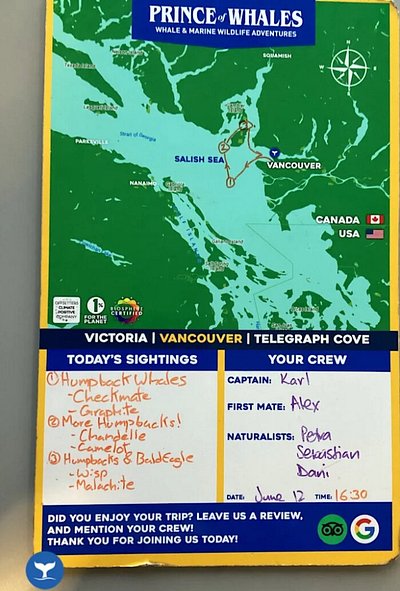 PRINCE of WHALES
WHALE & MARINE WILDLIFE ADVENTURES
SQUAMISH
Strait of Georgia
PARKSVILLE
SALISH SEA
VANCOUVER
NANAIMO
CANADA
USA
1%
FOR THE
PLANET
BIOSPHERE
CERTIFIED
VICTORIA | VANCOUVER | TELEGRAPH COVE
TODAY'S SIGHTINGS
① Humpback Whales
- Checkmate
- Graphite
② More Humpbacks!
- Chandelle
- Camelot
③ Humpbacks & Bald Eagle
- Wisp
- Malachite
YOUR CREW
CAPTAIN: Karl
FIRST MATE: Alex
NATURALISTS: Petra
Sebastian
Dani
DATE: June 12 TIME: 16:30
DID YOU ENJOY YOUR TRIP? LEAVE US A REVIEW,
AND MENTION YOUR CREW!
THANK YOU FOR JOINING US TODAY!